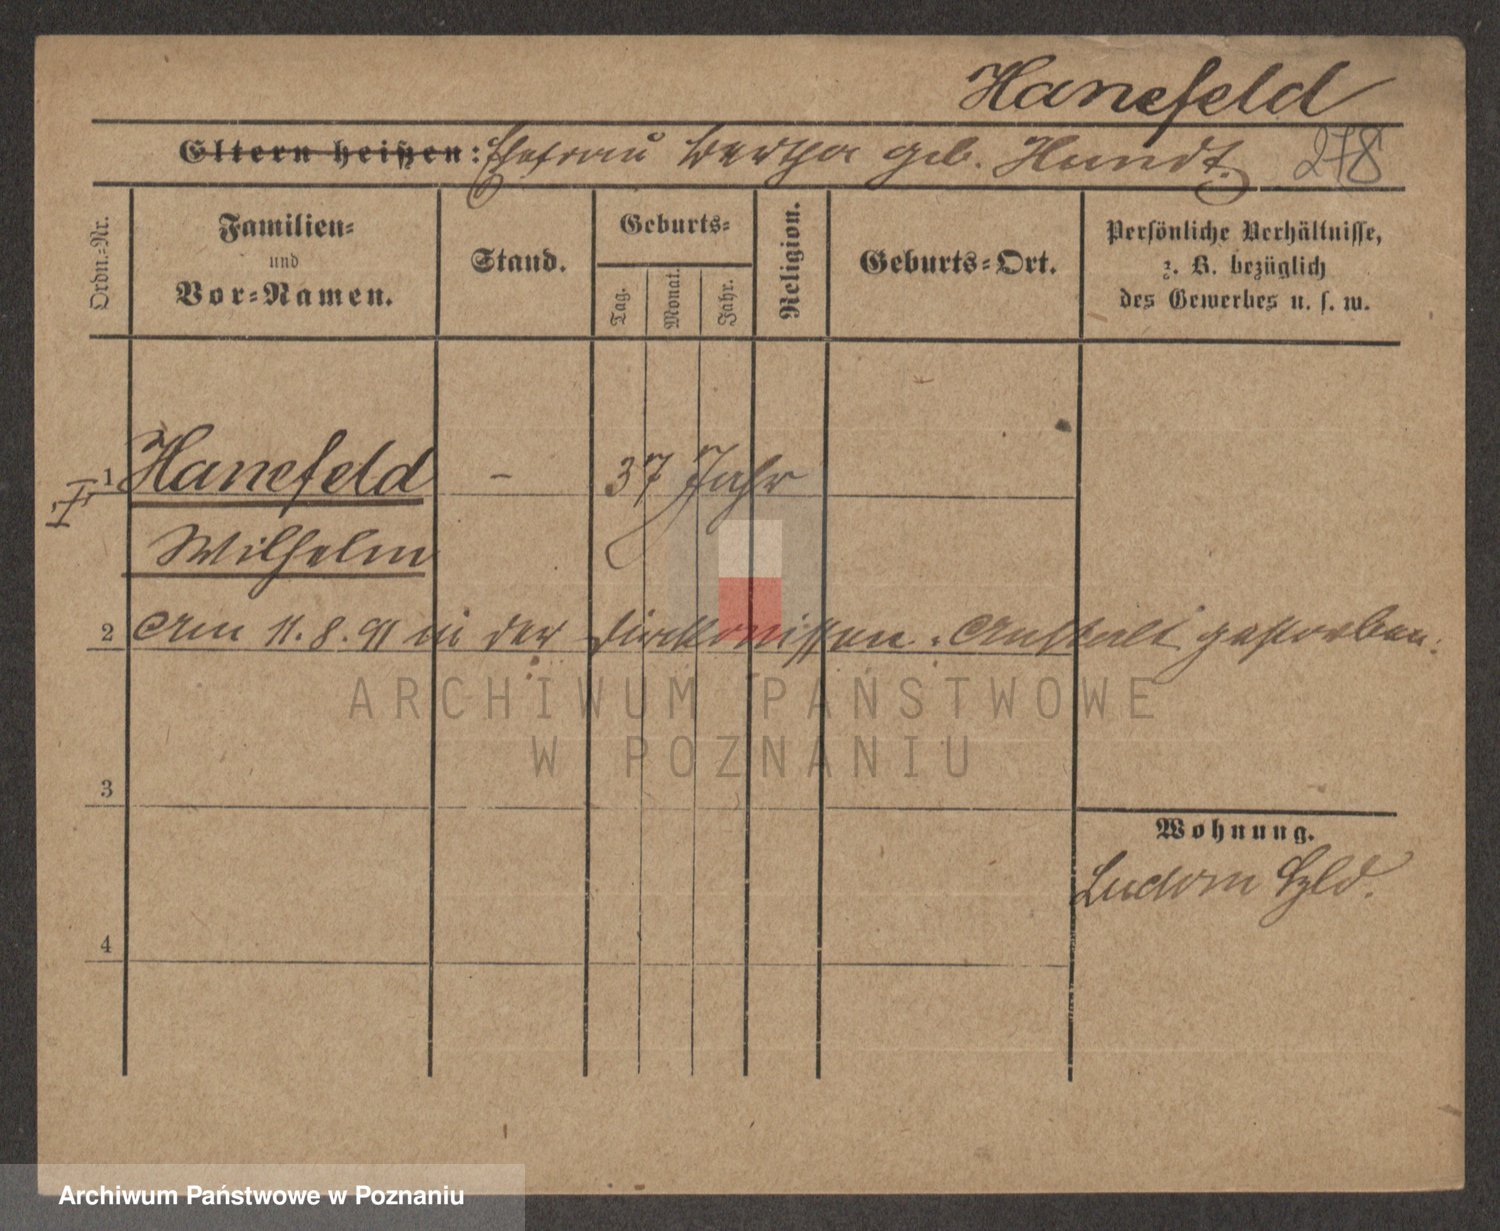 Hanefeld
Eltern heißen: Ehefrau Bertha geb. Hundt. 278
Ordn.-Nr.
Familien-
und
Vor-Namen.
Stand.
Geburts-
Tag.
Monat.
Jahr.
Religion.
Geburts-Ort.
Persönliche Verhältnisse,
z. B. bezüglich
des Gewerbes u. s. w.
1 Hanefeld - 37 Jahr
Wilhelm
2 Am 11.8.91 in der Diakonissen-Anstalt gestorben.
ARCHIWUM PAŃSTWOWE
W POZNANIU
3
Wohnung.
Ludom
4
Archiwum Państwowe w Poznaniu